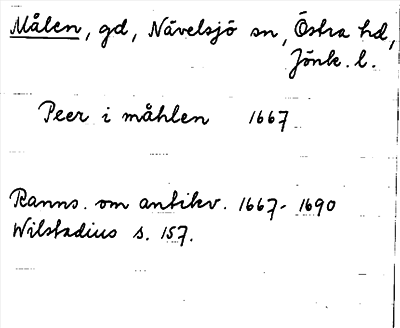 Målen, gd, Nävelsjö sn, Östra hd,
Jönk. l.
Peer i måhlen 1667
Ranns. om antikv. 1667-1690
Wilstadius s. 157.